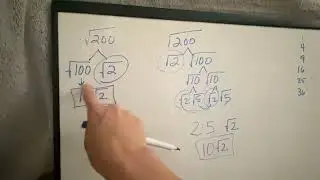 √200
√100 √2
√2
√200
√2 √100
√10 √10
√2 √5 √2 √5
2·5 √2
10√2
4
9
16
25
36